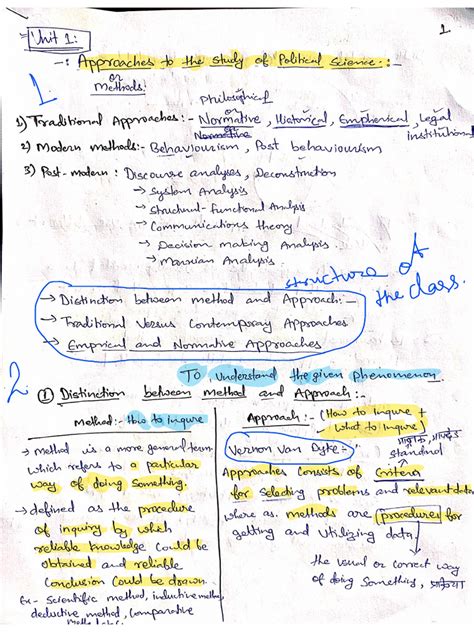 Unit 1:
1
-: Approaches to the study of Political Science :-
or
Methods:
1.
philosophical
or
1) Traditional Approaches:- Normative, Historical, Empherical, Legal
Normative
institutional
2) Modern methods:- Behaviourism, Post behaviourism
3) Post-modern : Discourse analyses, Deconstruction
→ System Analysis
→ Structural-functional Analysis
→ Communications theory
→ Decision making Analysis
→ Marxian Analysis.
structure of
the class.
→ Distinction between method and Approach:-
→ Traditional Versus Contemporary Approaches
→ Emprical and Normative Approaches
2.
To understand the given phenomenon
① Distinction between method and Approach:-
Method:- How to inqure
→ Method is a more general term
which refers to a particular
way of doing something.
→ defined as the procedure
of inquiry by which
reliable knowledge could be
obtained and reliable
conclusion could be drawn.
Ex- Scientific method, inductive method,
deductive method, comparative
Approach:- (How to inqure +
what to inqure)
Vernon van Dyke:-
standard
Approaches consists of criteria
for selecting problems and relevant data
where as. methods are procedures for
getting and utilizing data.
the usual or correct way
of doing something, प्रक्रिया